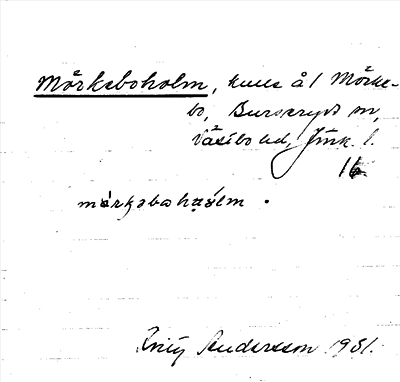 Mörkeboholm, kulle å 1 Mörke-
bo, Burseryds sn,
Västbo hd, Jönk. l.
16
mörkəbohọ́lm .
Andersson 1931.